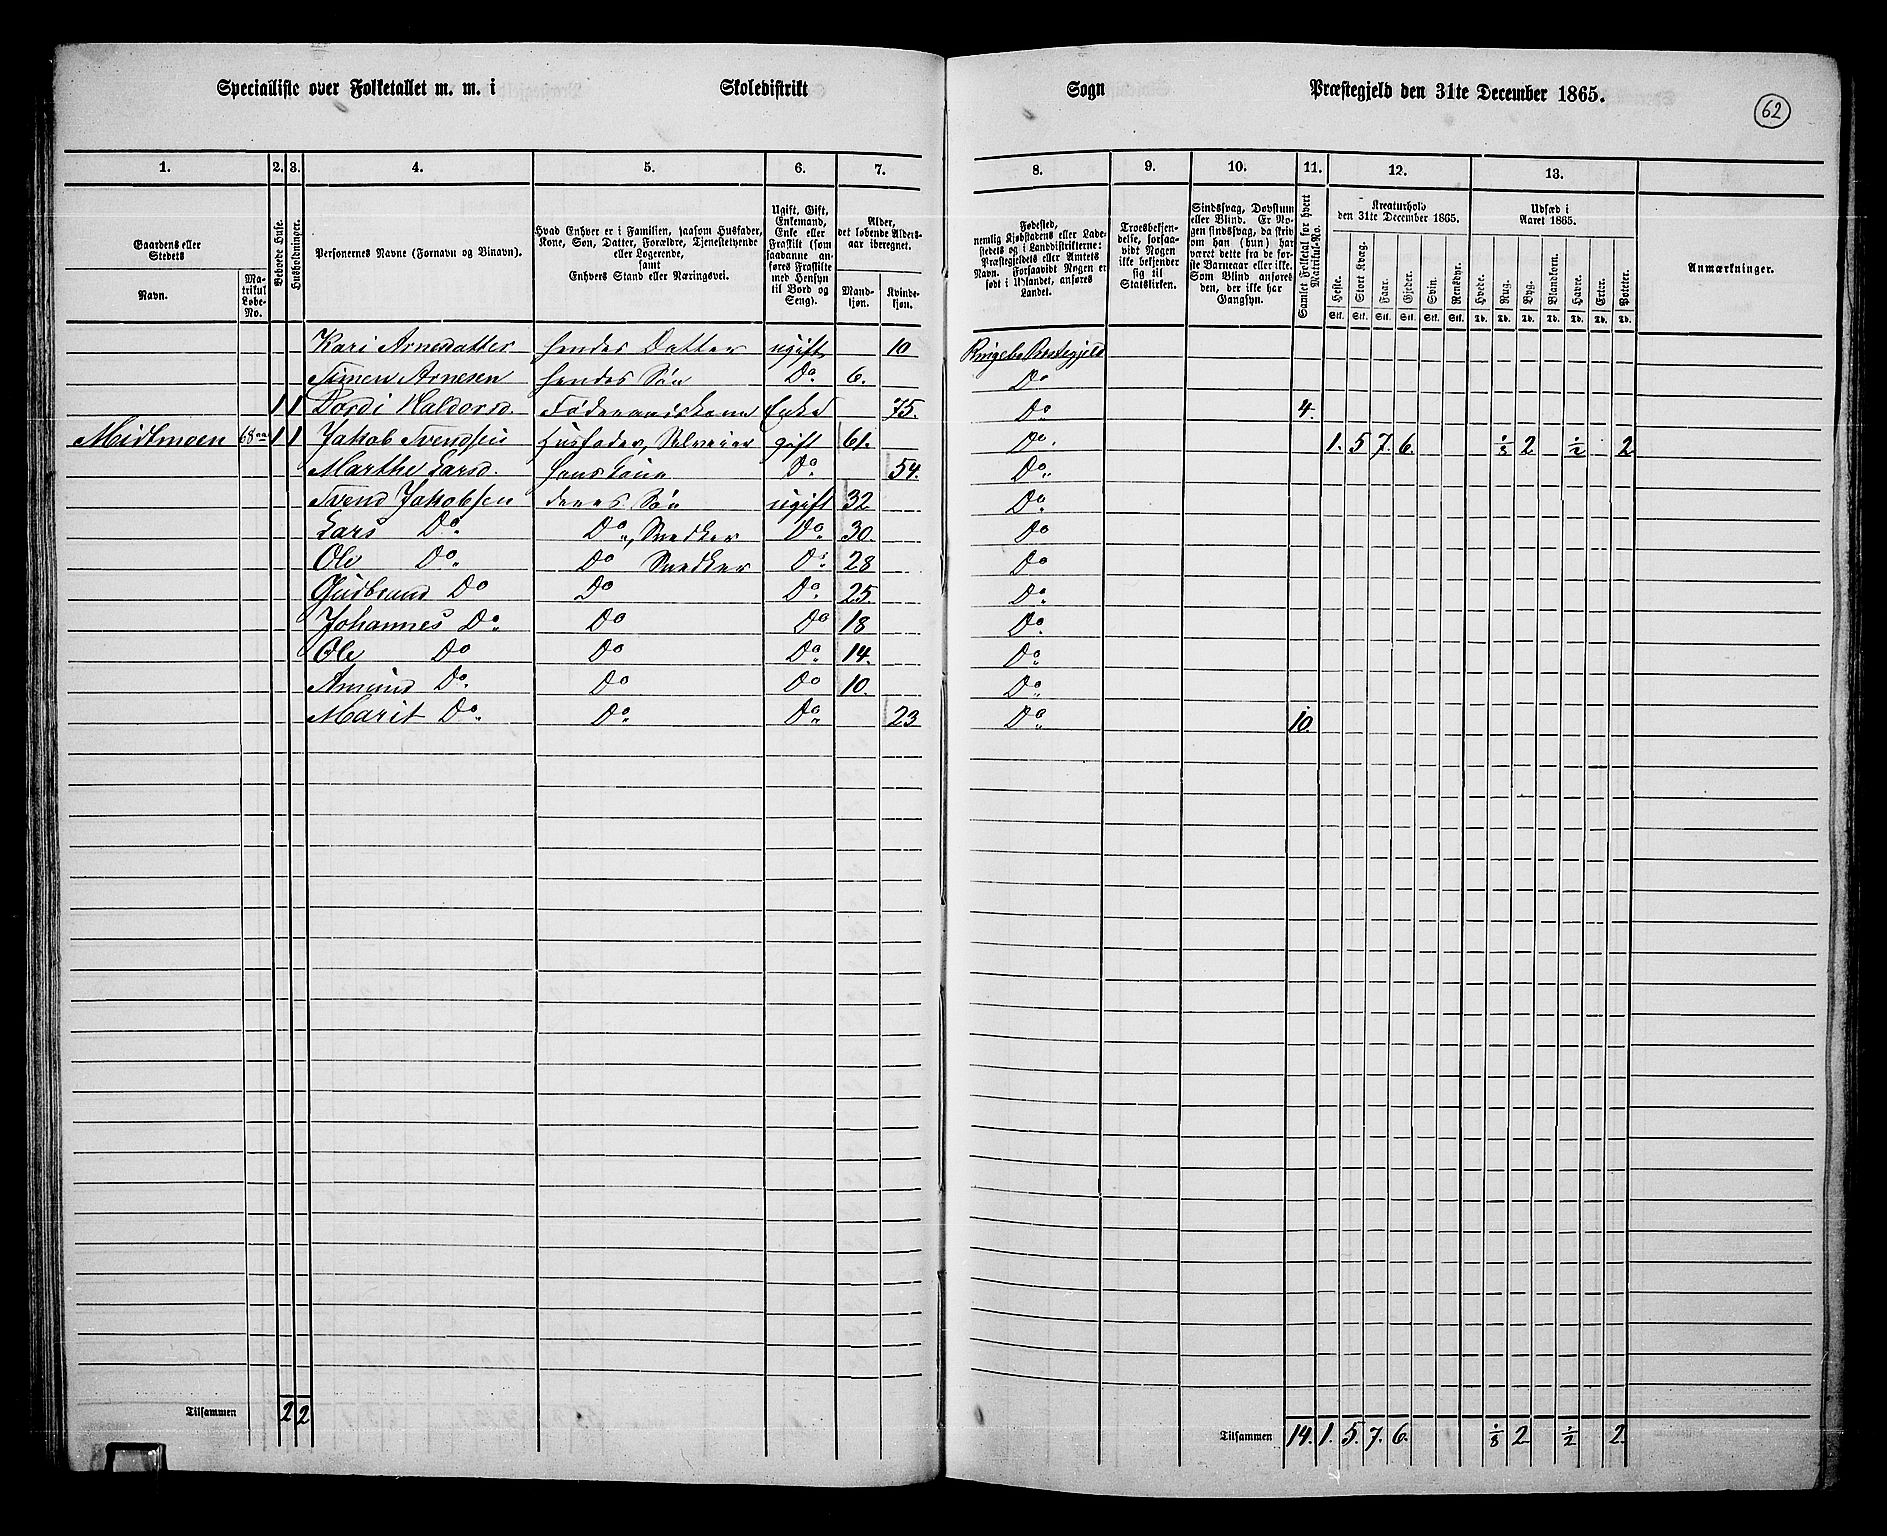 Specialliste over Folketallet m. m. i Skoledistrikt Sogn Præstegjeld den 31te December 1865.
62
1. 2. 3. 4. 5. 6. 7. 8. 9. 10. 11. 12. 13.
Gaardens eller Stedets
Navn.
Matrikul Løbe-No.
Beboede Huse.
Husholdninger.
Personernes Navne (Fornavn og Binavn).
Hvad Enhver er i Familien, saasom Husfader,
Kone, Søn, Datter, Forældre, Tjenestetyende
eller Logerende,
samt
Enhvers Stand eller Næringsvei.
Ugift, Gift,
Enkemand,
Enke eller
Fraskilt (som
saadanne anføres
Fraskilte
med Hensyn
til Bord og
Seng).
Alder,
det løbende Aldersaar
iberegnet.
Mandkjøn.
Kvindekjøn.
Fødested,
nemlig Kjøbstadens eller Ladestedets
og i Landdistrikterne:
Præstegjeldets eller Amtets
Navn. Forsaavidt Nogen er
født i Udlandet, anføres
Landet.
Troesbekjendelse,
forsaavidt
Nogen
ikke bekjender
sig til
Statskirken.
Sindssvag, Døvstum
eller Blind. Er Nogen
sindssvag, da skriv
om han (hun) har
været dette fra de første
Barneaar eller ikke.
Som Blind anføres
den, der ikke har
Gangsyn.
Samlet Folketal for hvert Matrikul-No.
Kreaturhold
den 31te December 1865.
Heste. Stort Kvæg. Faar. Gjeder. Svin. Rensdyr.
Stk. Stk. Stk. Stk. Stk. Stk.
Udsæd i
Aaret 1865.
Hvede. Rug. Byg. Blandkorn. Havre. Erter. Poteter.
Td. Td. Td. Td. Td. Td. Td.
Anmærkninger.
Kari Arnesdatter hendes Datter ugift 10 Ringebu Præstegjeld
Simen Arnesen hendes Søn Do. 6. Do
1 1 Tordi Haldorsd. Føderaadskone Enke 75. Do 4.
Midtmoen 68 aa 1 1 Jakob Svendsen Husfader, Selveier gift 61. Do. 1. 5 7. 6. 1/8 2 1/2 2
Marthe Larsd. hans Kone Do. 54. Do.
Svend Jakobsen deres Søn ugift 32 Do
Lars Do. Do., Snedker Do. 30. Do
Ole Do. Do Snedker Do. 28 Do
Gudbrand Do Do Do. 25. Do.
Johannes Do. Do Do 18 Do.
Ole Do Do Do. 14. Do.
Amund Do. Do Do 10. Do.
Marit Do. Do. Do. 23 Do. 10.
Tilsammen 2 2
Tilsammen 14. 1. 5. 7. 6. 1/8 2 1/2 2.